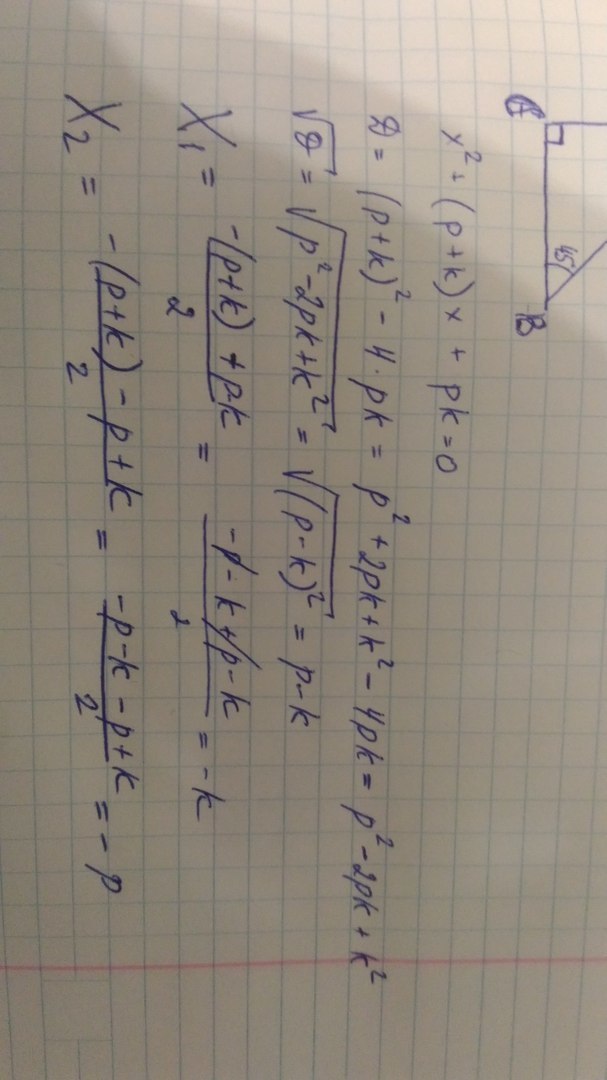 C
45°
B
x² + (p+k)x + pk = 0
D = (p+k)² - 4·pk = p² + 2pk + k² - 4pk = p² - 2pk + k²
√D = √(p² - 2pk + k²) = √((p-k)²) = p - k
X₁ = (-(p+k) + p-k)/2 = (-p - k + p - k)/2 = -k
X₂ = (-(p+k) - p + k)/2 = (-p - k - p + k)/2 = -p